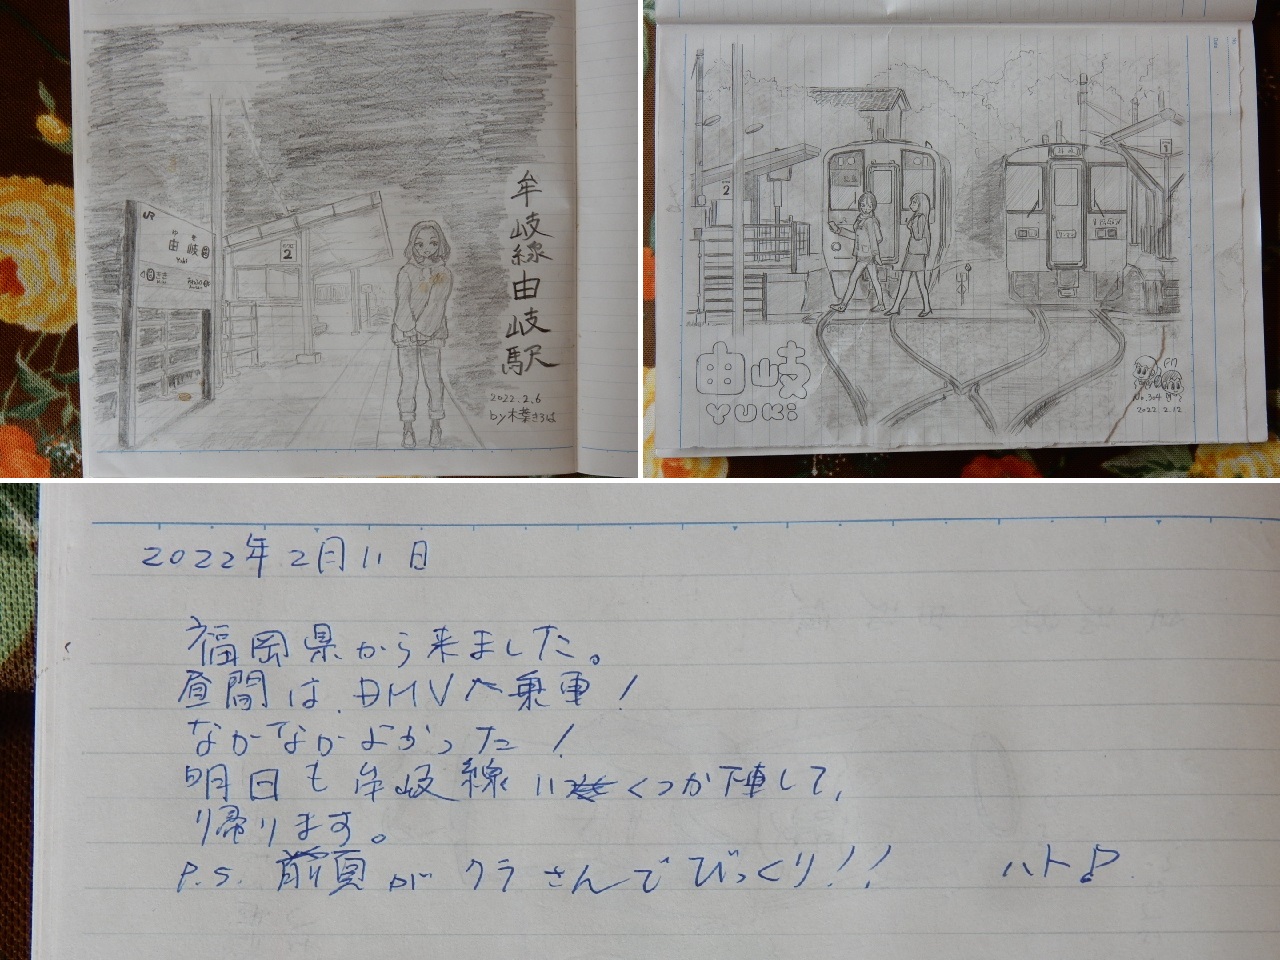 JR
ゆき
由岐
Yuki
2
牟岐線由岐駅
2022.2.6
by 木葉きろは
2
1
由岐
YUKi
No.304
2022.2.12
2022年2月11日
福岡県から来ました。
昼間は、DMVへ乗車!
なかなかよかった!
明日も牟岐線いくつか下車して、
帰ります。
P.S. 前頁がクラさんでびっくり!!
ハト♪